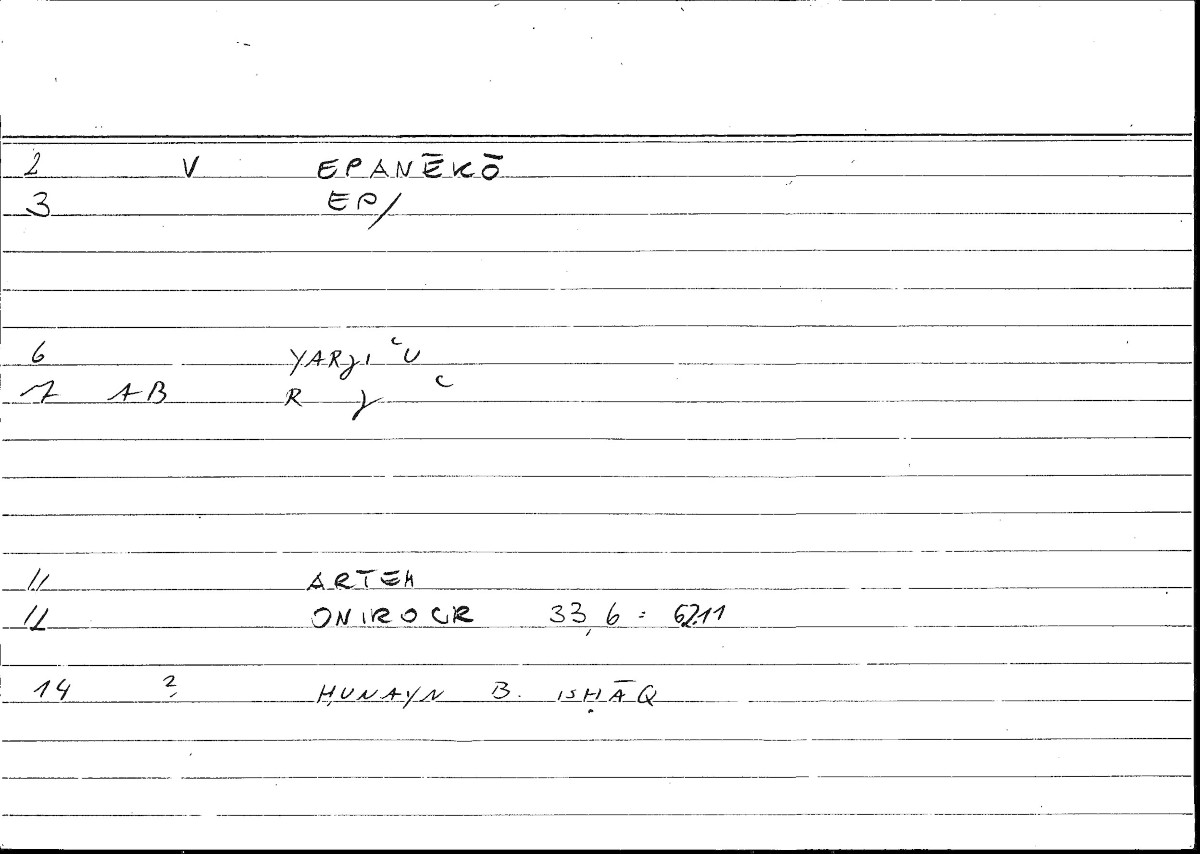 2 V EPANĒKŌ
3 EP/
6 YARJI ʿU
7 AB R J ʿ
11 ARTEM
12 ONIROCR 33,6 = 62.11
14 ? ḤUNAYN B. ISḤĀQ